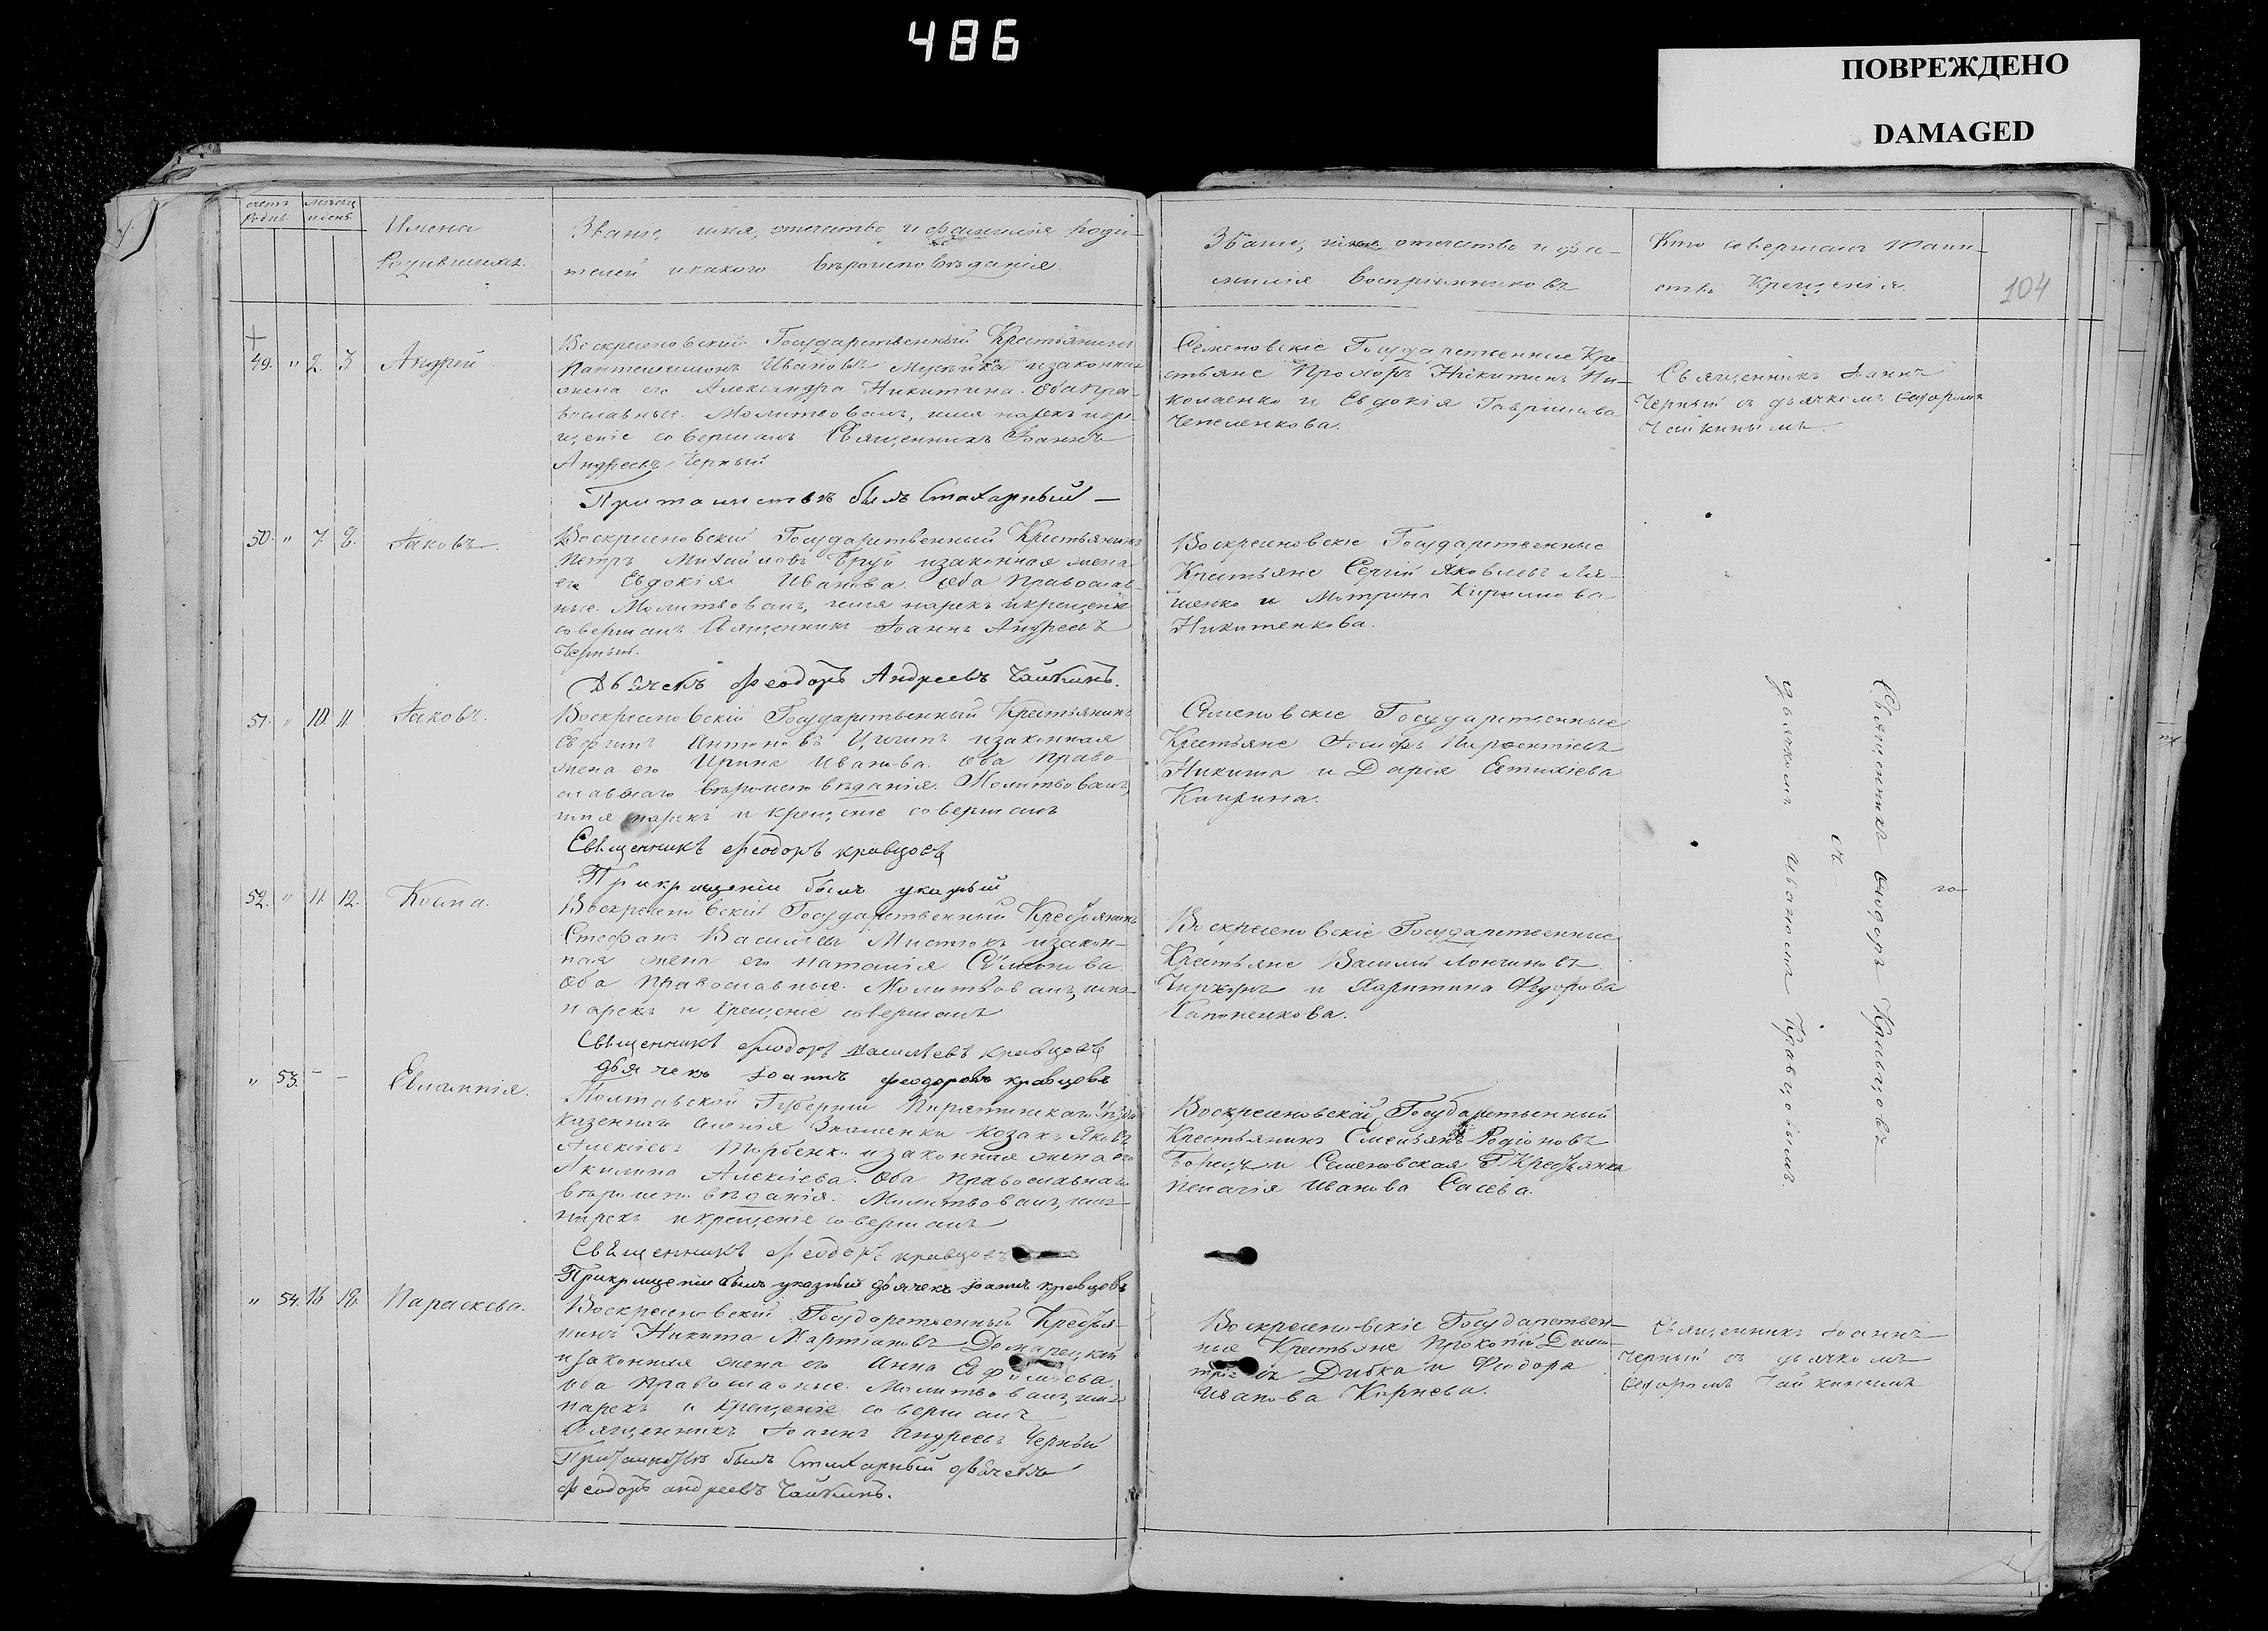 486
ПОВРЕЖДЕНО
DAMAGED
счетъ Родив.
месяц и день
Имена
Родившихся.
Званіе, имя, отчество и фамилія роди-
телей и какого вѣроисповѣданія.
Званіе, имя, отчество и фа-
милія воспріемниковъ
Кто совершалъ таин-
ство Крещенія.
104
49. " 2. 3 Андрей
Воскресеновскій Государственный Крестьянинъ
Пантелеимонъ Ивановъ и законная
жена его Александра Никитина. Оба пра-
вославные. Молитвовалъ, имя нарекъ и кре-
щеніе совершалъ Священникъ Іоаннъ
Андреевъ Черный
При таинствѣ былъ Стихарный —
Семеновскіе Государственные Кре-
стьяне Прохоръ Никитинъ Ни-
колаенко и Евдокія Гаврилова
Священникъ Іоаннъ
Черный съ дьячкомъ Ѳеодоромъ
Чайкинымъ.
50. " 7. 8. Іаковъ.
Воскресеновскій Государственный Крестьянинъ
Петръ Михайловъ и законная жена
его Евдокія Иванова. Оба Православ-
ные. Молитвовалъ, имя нарекъ и крещеніе
совершалъ Священникъ Іоаннъ Андреевъ
Черный.
Дьячекъ Феодоръ Андреевъ Чайкинъ.
Воскресеновскіе Государственные
Крестьяне Сергій Яковлевъ Ля-
шенко и Мотрона Кирилова
Никитенкова.
51. " 10. 11. Іаковъ.
Воскресеновскій Государственный Крестьянинъ
Евфимъ Антоновъ и законная
жена его Ирина Иванова. Оба право-
славнаго вѣроисповѣданія. Молитвовалъ,
имя нарекъ и крещеніе совершалъ
Священникъ Феодоръ Кравцовъ
При крещеніи былъ указный
Семеновскіе Государственные
Крестьяне Іосифъ
Никита и Дарія Евтихіева
52. " 11. 12. Косма.
Воскресеновскій Государственный Крестьянинъ
Стефанъ Васильевъ и закон-
ная жена его Наталія
Оба Православные. Молитвовалъ, имя
нарекъ и крещеніе совершалъ
Священникъ Феодоръ Васильевъ Кравцовъ
дьячекъ Іоаннъ Феодоровъ Кравцовъ
Воскресеновскіе Государственные
Крестьяне Василій Логиновъ
и Харитина Ѳедорова
Священникъ Ѳеодоръ Кравцовъ
съ
дьячкомъ Иваномъ Кравцовымъ.
" 53. - - Евгенія.
Полтавской Губерніи Пирятинскаго Уѣзда
казеннаго селенія Знаменки козакъ Яковъ
Алексіевъ и законная жена его
Акилина Алексіева. Оба Православнаго
вѣроисповѣданія. Молитвовалъ, имя
нарекъ и крещеніе совершалъ
Священникъ Феодоръ Кравцовъ
При крещеніи былъ указный дьячекъ Іоаннъ Кравцовъ
Воскресеновскій Государственный
Крестьянинъ Емельянъ Родіоновъ
и Семеновская Г. Крестьянка
Пелагія Иванова
" 54. 16 18. Параскева.
Воскресеновскій Государственный Крестья-
нинъ Никита Мартіановъ
и законная жена его Анна Ефимьева.
Оба Православные. Молитвовалъ, имя
нарекъ и крещеніе совершалъ
Священникъ Іоаннъ Андреевъ Черный
При таинствѣ былъ Стихарный дьячекъ
Феодоръ Андреевъ Чайкинъ.
Воскресеновскіе Государствен-
ные Крестьяне Прокопій Дими-
тріевъ Дибка и Ѳеодора
Иванова
Священникъ Іоаннъ
Черный съ дьячкомъ
Ѳеодоромъ Чайкинымъ